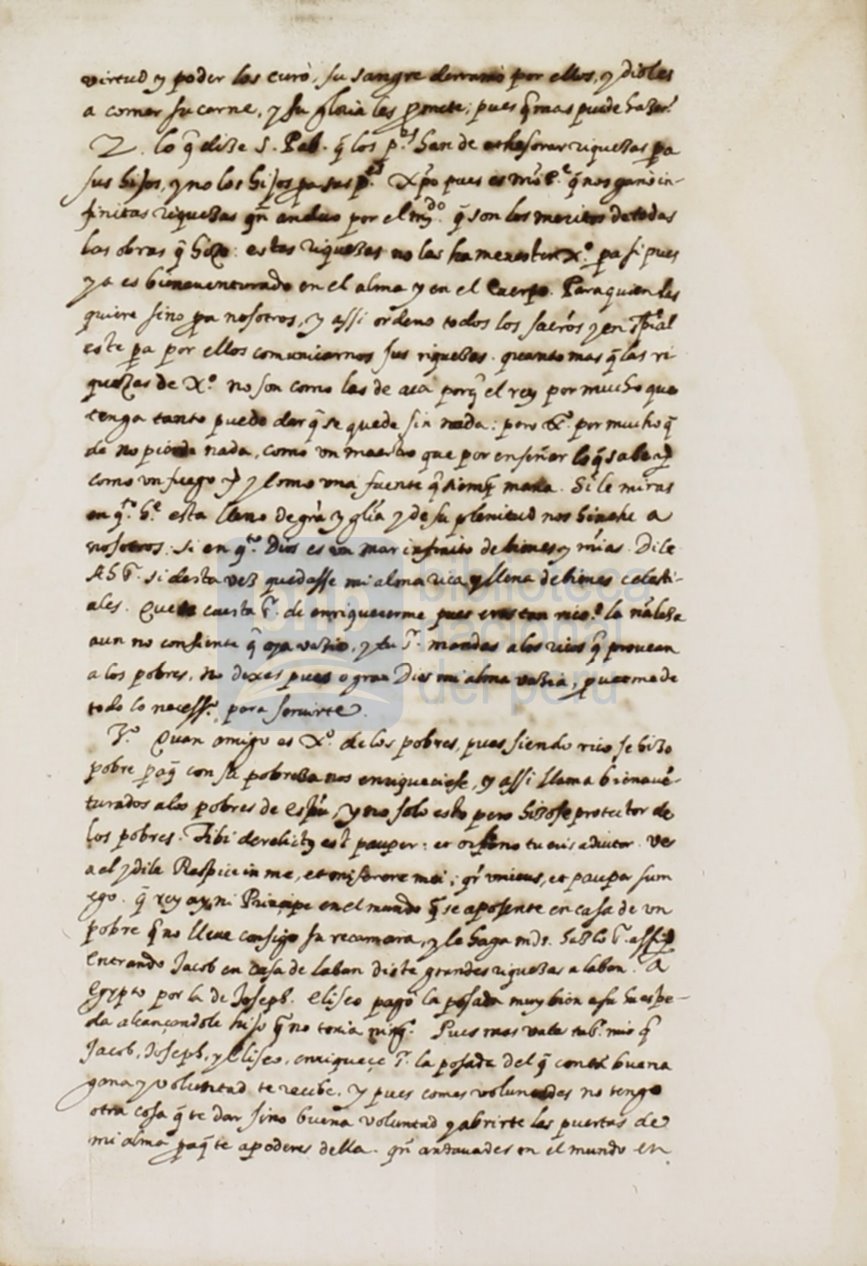 virtud y poder los curò, su sangre derramò por ellos, y dioles
a comer su carne, y su gloria les promete; pues q̃ mas puede hazer?
2. lo q̃ dize S. Pab. q̃ los p.es han de athesorar riquezas pa
sus hijos, y no los hijos pa sus p.es Xp̃o pues es nr̃o P.e q̃ nos ganò in-
finitas riquezas qñ anduo por el mdo. q̃ son los meritos de todas
las obras q̃ hizo: estas riquezas no las ha menester X.o pa si pues
ya es bienauenturado en el alma y en el cuerpo. Para quien las
quiere sino pa nosotros, y assi ordeno todos los sacrõs y en spãl
este pa por ellos comunicarnos sus riquezas. quanto mas q̃ las ri-
quezas de X.o no son como las de aca porq̃ el rey por mucho que
tenga tanto puede dar q̃ se quede sin nada: pero X.o por mucho q̃
de no pierde nada, como un maestro que por enseñar lo q̃ sabe
como un fuego y como una fuente q̃ siemp̃ mana. Si le miras
en q.to h.e esta lleno de gr̃a y glĩa y de su plenitud nos hinche a
nosotros: si en q.to Dios es un mar infinito de bienes y mĩas. Dile
Ah S.r si desta vez quedasse mi alma rica y llena de bienes celesti-
ales. Que te cuesta S.r de enriquecerme pues eres tan rico? la nãleza
aun no consiente q̃ aya vazio, y tu S.r mandas a los ricos q̃ prouean
a los pobres, no dexes pues o gran Dios mi alma vazia, prueeme de
todo lo necess.o para seruirte.
3.o Quan amigo es X.o de los pobres, pues siendo rico se hizo
pobre paq̃ con su pobreza nos enriqueciese, y assi llama bienauẽ-
turados a los pobres de espũ, y no solo esto pero hizose protector de
los pobres. Tibi derelictus est pauper: et orfano tu eris adiutor. Ves
a el y dile Respice in me, et miserere mei; qr̃ unicus, et pauper sum
ego. q̃ rey ay, ni Principe en el mundo q̃ se aposente en casa de un
pobre q̃ no lleue consigo su recamara, y le haga mds. hazlo S.r assi
entrando Jacob en casa de laban diste grandes riquezas a laban. A
Egypto por la de Joseph. Eliseo pagò la posada muy bien a su huespe-
da alcançandole hijo q̃ no tenia ning.o Pues mas vale mio q̃
Jacob, Joseph, y Eliseo, enriqueçe S.r la posada del q̃ con tã buena
gana y voluntad te recibe. Y pues comes voluntades no tengo
otra cosa q̃ te dar sino buena voluntad y abrirte las puertas de
mi alma paq̃ te apoderes della. qñ andauades en el mundo en
biblioteca
nacional
del perú